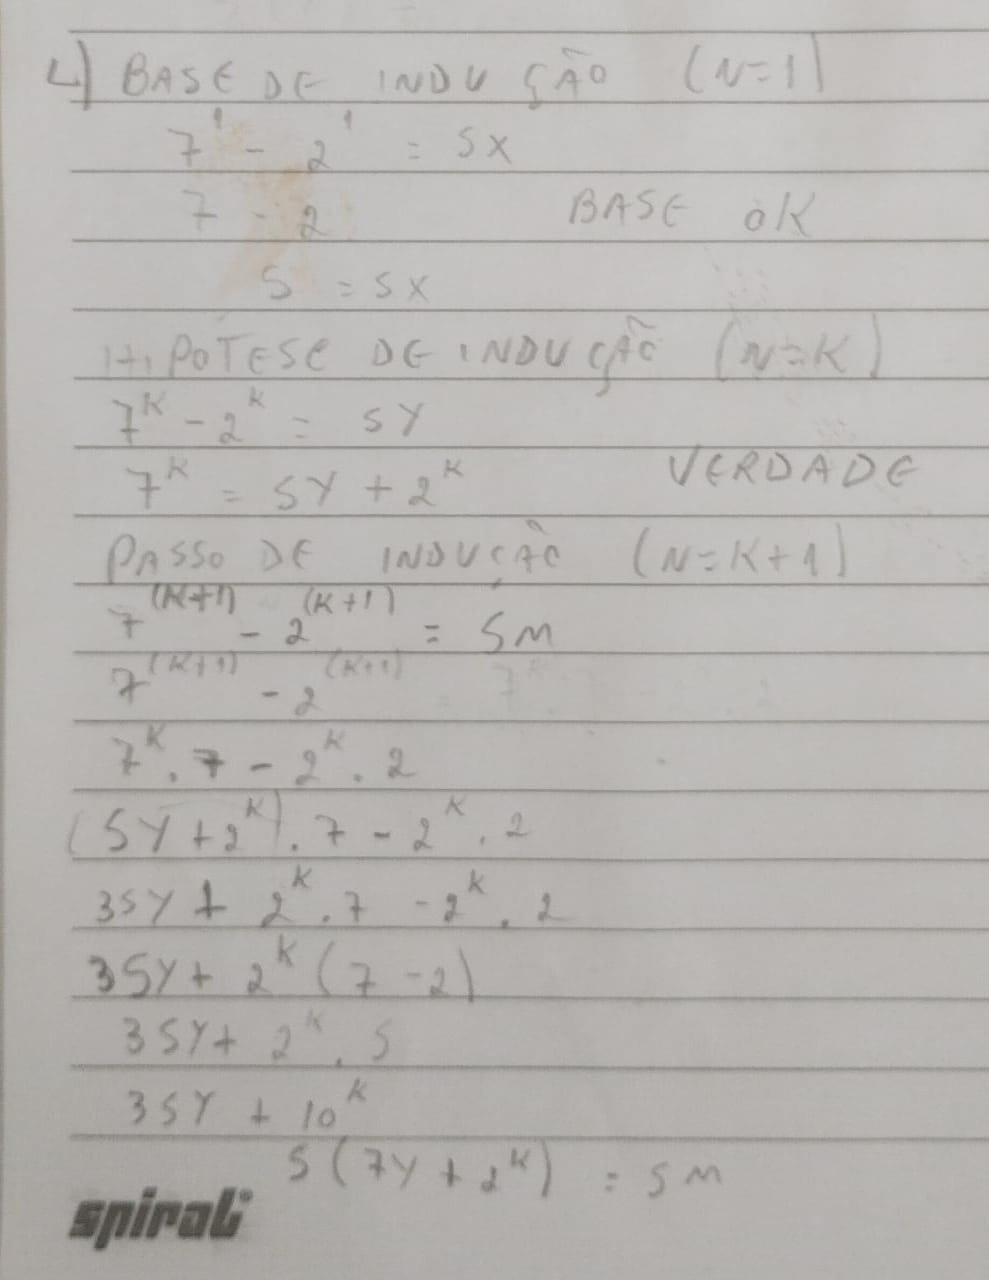 4) BASE DE INDUÇÃO (N=1)
7¹ - 2¹ = 5X
7 - 2 BASE OK
5 = 5X
HIPOTESE DE INDUÇÃO (N=K)
7^K - 2^K = 5Y
7^K = 5Y + 2^K VERDADE
PASSO DE INDUÇÃO (N=K+1)
7^(K+1) - 2^(K+1) = 5M
7^(K+1) - 2^(K+1)
7^K . 7 - 2^K . 2
(5Y + 2^K) . 7 - 2^K . 2
35Y + 2^K . 7 - 2^K . 2
35Y + 2^K (7 - 2)
35Y + 2^K . 5
35Y + 10^K
5(7Y + 2^K) = 5M
spiral